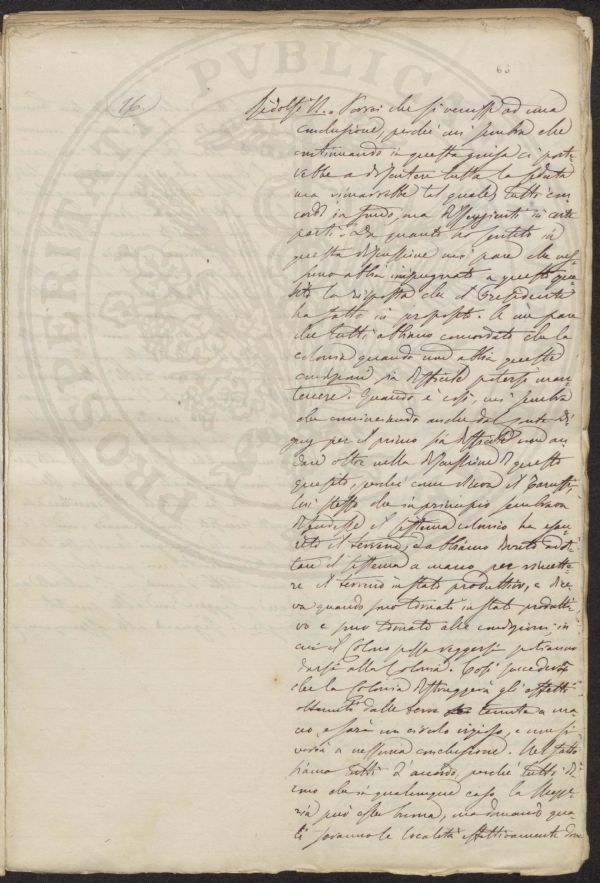 63
16.
Ridolfi N. - Vorrei che si venisse ad una
conclusione, perché mi sembra che
continuando in questa guisa ci porte-
rebbe a discutere tutta la
ma rimarrebbe tal quale, tutti con-
cordi in fondo, ma dissenzienti in certe
parti. Da quanto ho sentito in
questa discussione mi pare che nes-
suno abbia impugnato a questo que-
sito la risposta che il Presidente
ha fatto in proposito. A me pare
che tutti abbiano concordato che la
colonia quando non abbia queste
condizioni sia difficile potersi man-
tenere. Quando è così, mi sembra
che cominciando anche dal Conte De
per il primo sia difficile non an-
dare oltre nella discussione di questo
quesito, perché come diceva il
lui stesso che in principio sembrava
difendesse il sistema colonico ha
il terreno, e abbiamo dovuto adot-
tare il sistema a mano per rimette-
re il terreno in stato produttivo, e dice-
va quando sono tornati in stato produtti-
vo e sono tornato alle condizioni in
cui il Colono possa reggersi potranno
darsi alla Colonia. Così succederà
che la Colonia distruggerà gli effetti
ottenuti dalle terre tenute a ma-
no, e sarà un circolo vizioso, e non si
verrà a nessuna conclusione. Nel fatto
siamo tutti d'accordo, perché tutti di-
cono che in qualunque caso la Mezze-
ria può esser buona, ma domando qua-
li saranno le località effettivamente dove
PROSPERI
PVBLICA